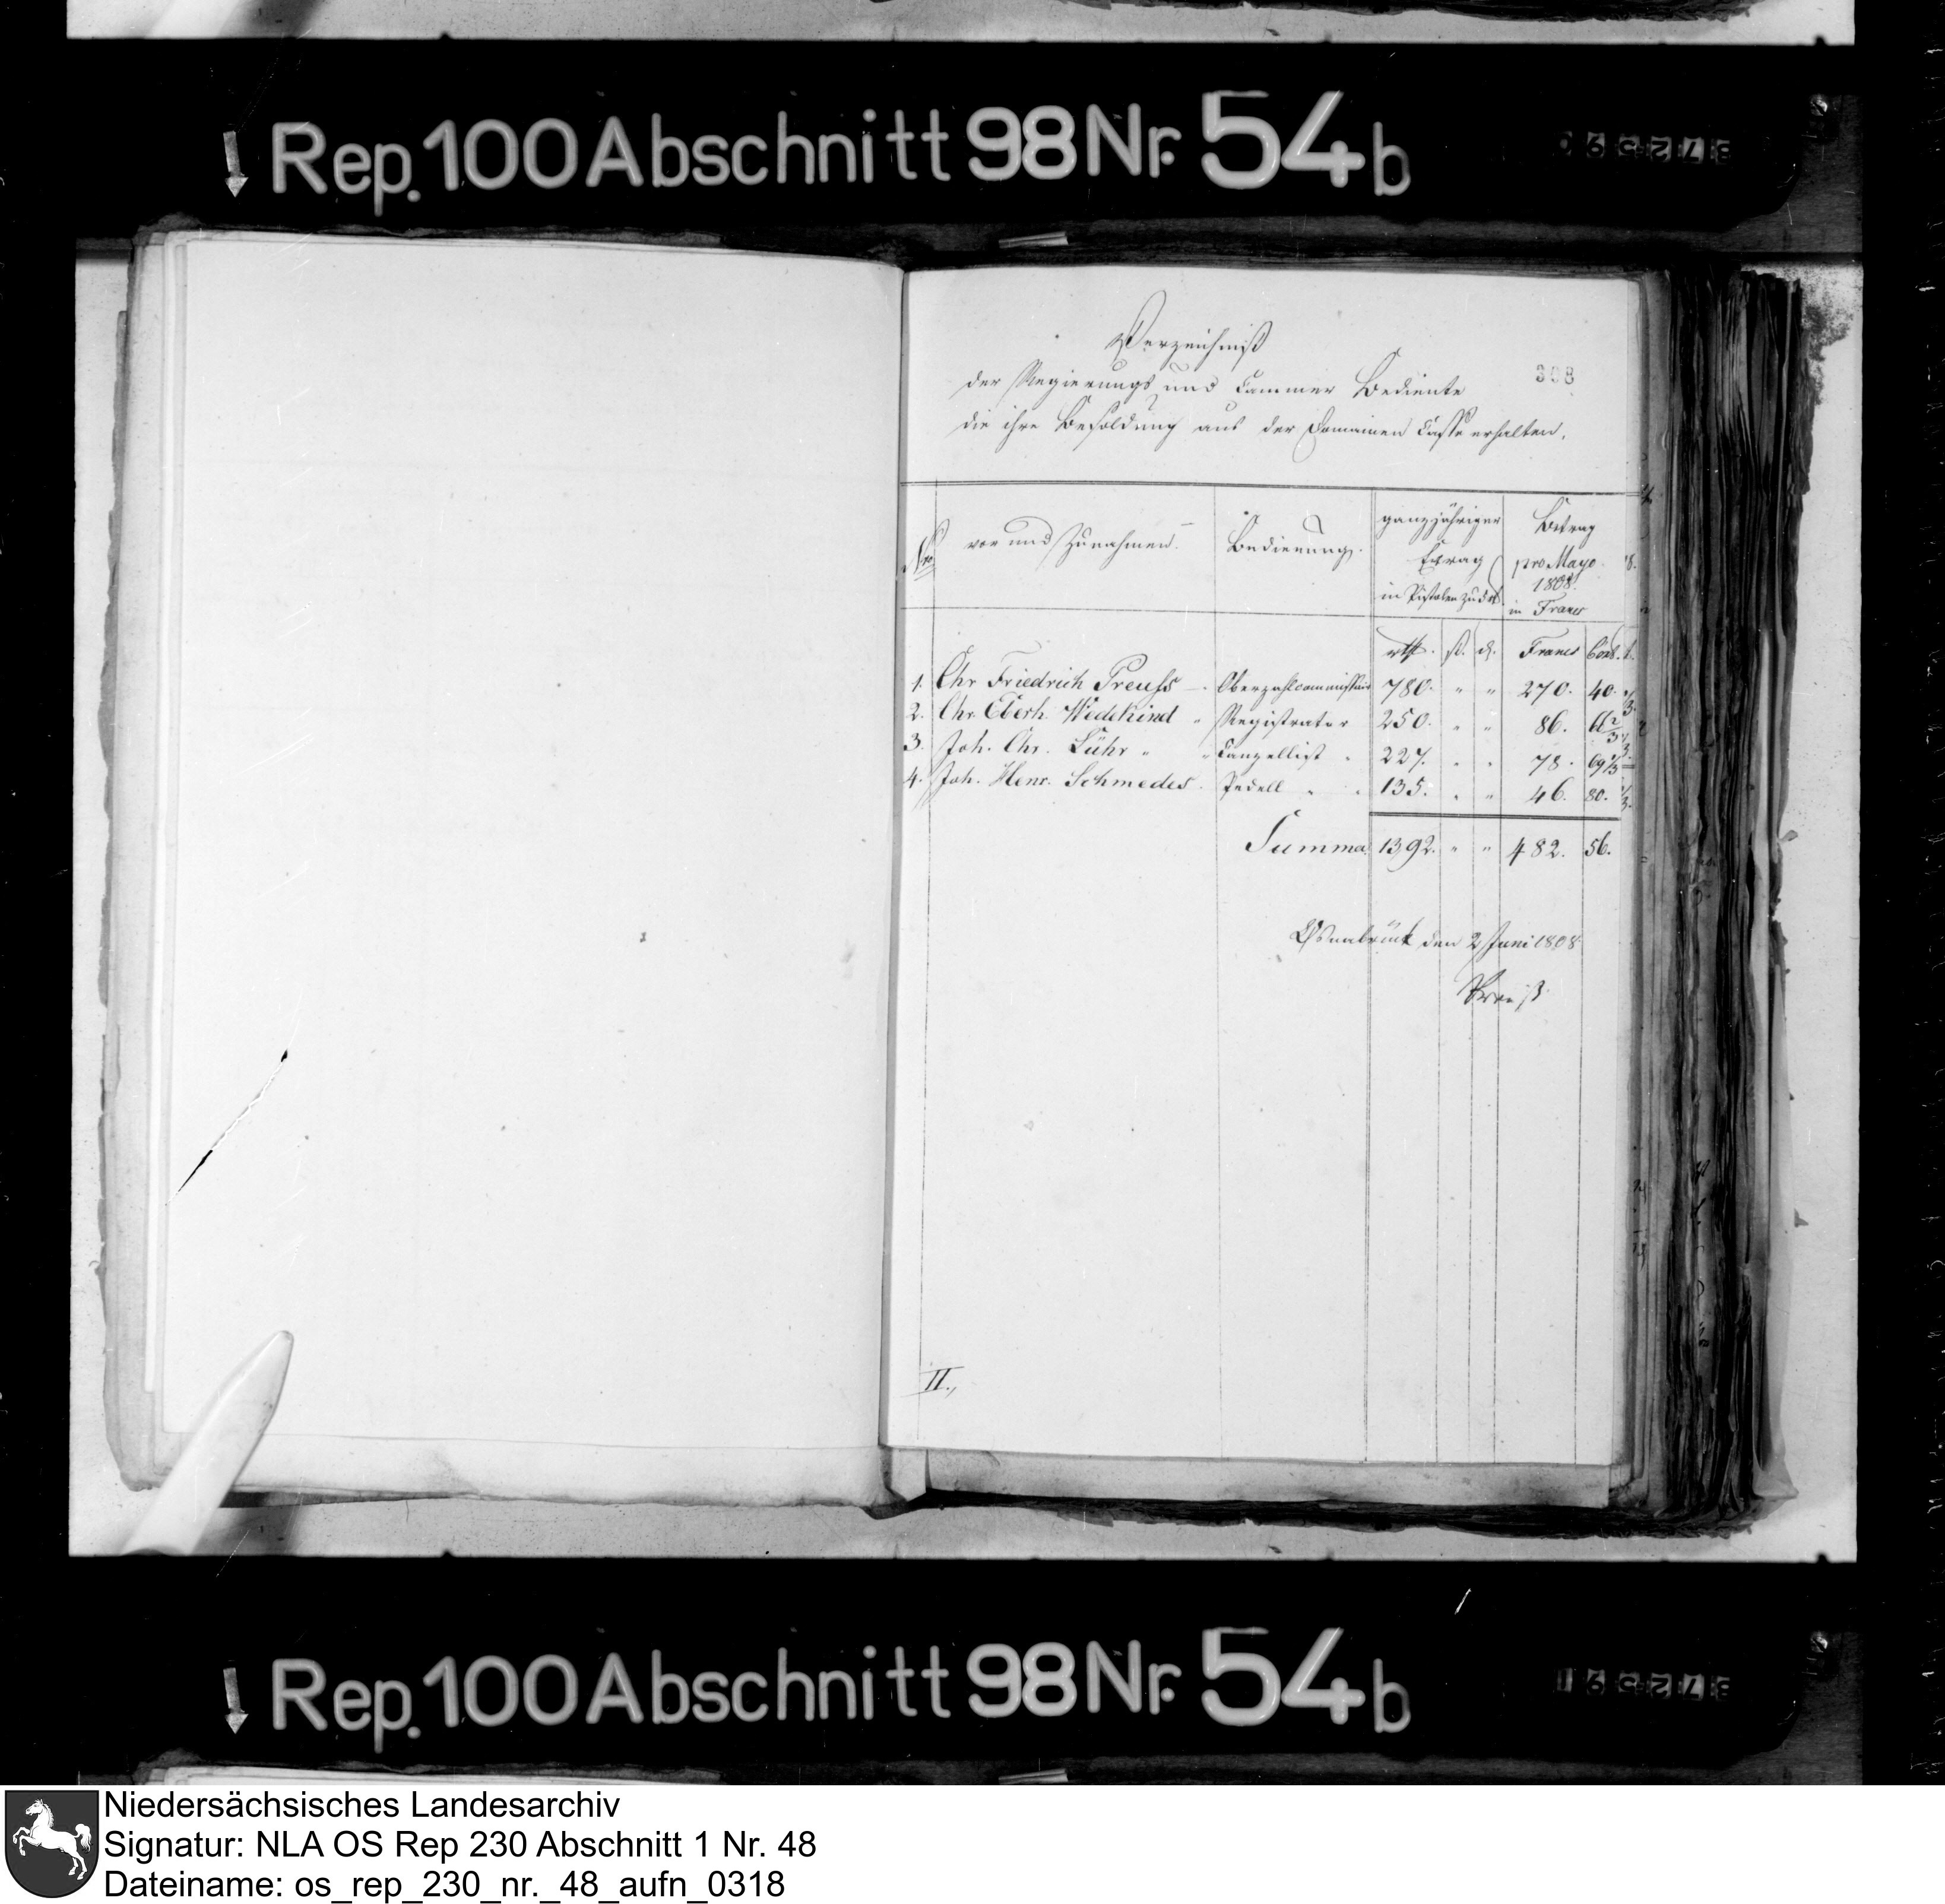 Rep. 100 Abschnitt 98 Nr. 54 b
Verzeichniß
308
der Regierungs und Cammer Bediente
die ihre Besoldung aus der Domainen Casse erhalten.
No vor und Zunahmen. Bedienung. ganzjähriger Betrag
pro Mayo
1808.
in Pistolen zu 5 rt in Francs
rthl. ß. d. Francs Cent.
1. Chr Friedrich Preuss 780. " " 270. 40.
2. Chr. Eberh. Wedekind " Registrator 250. " " 86. 66 2/3
3. Joh. Chr. Lühr " " Canzellist " 227. " " 78. 69 1/3
4. Joh. Henr. Schmedes. Pedell " " 135. " " 46. 80.
Summa 1392. " " 482. 56.
Osnabrück den 2 Juni 1808.
Preuß
II.,
Rep. 100 Abschnitt 98 Nr. 54 b
Niedersächsisches Landesarchiv
Signatur: NLA OS Rep 230 Abschnitt 1 Nr. 48
Dateiname: os_rep_230_nr._48_aufn_0318